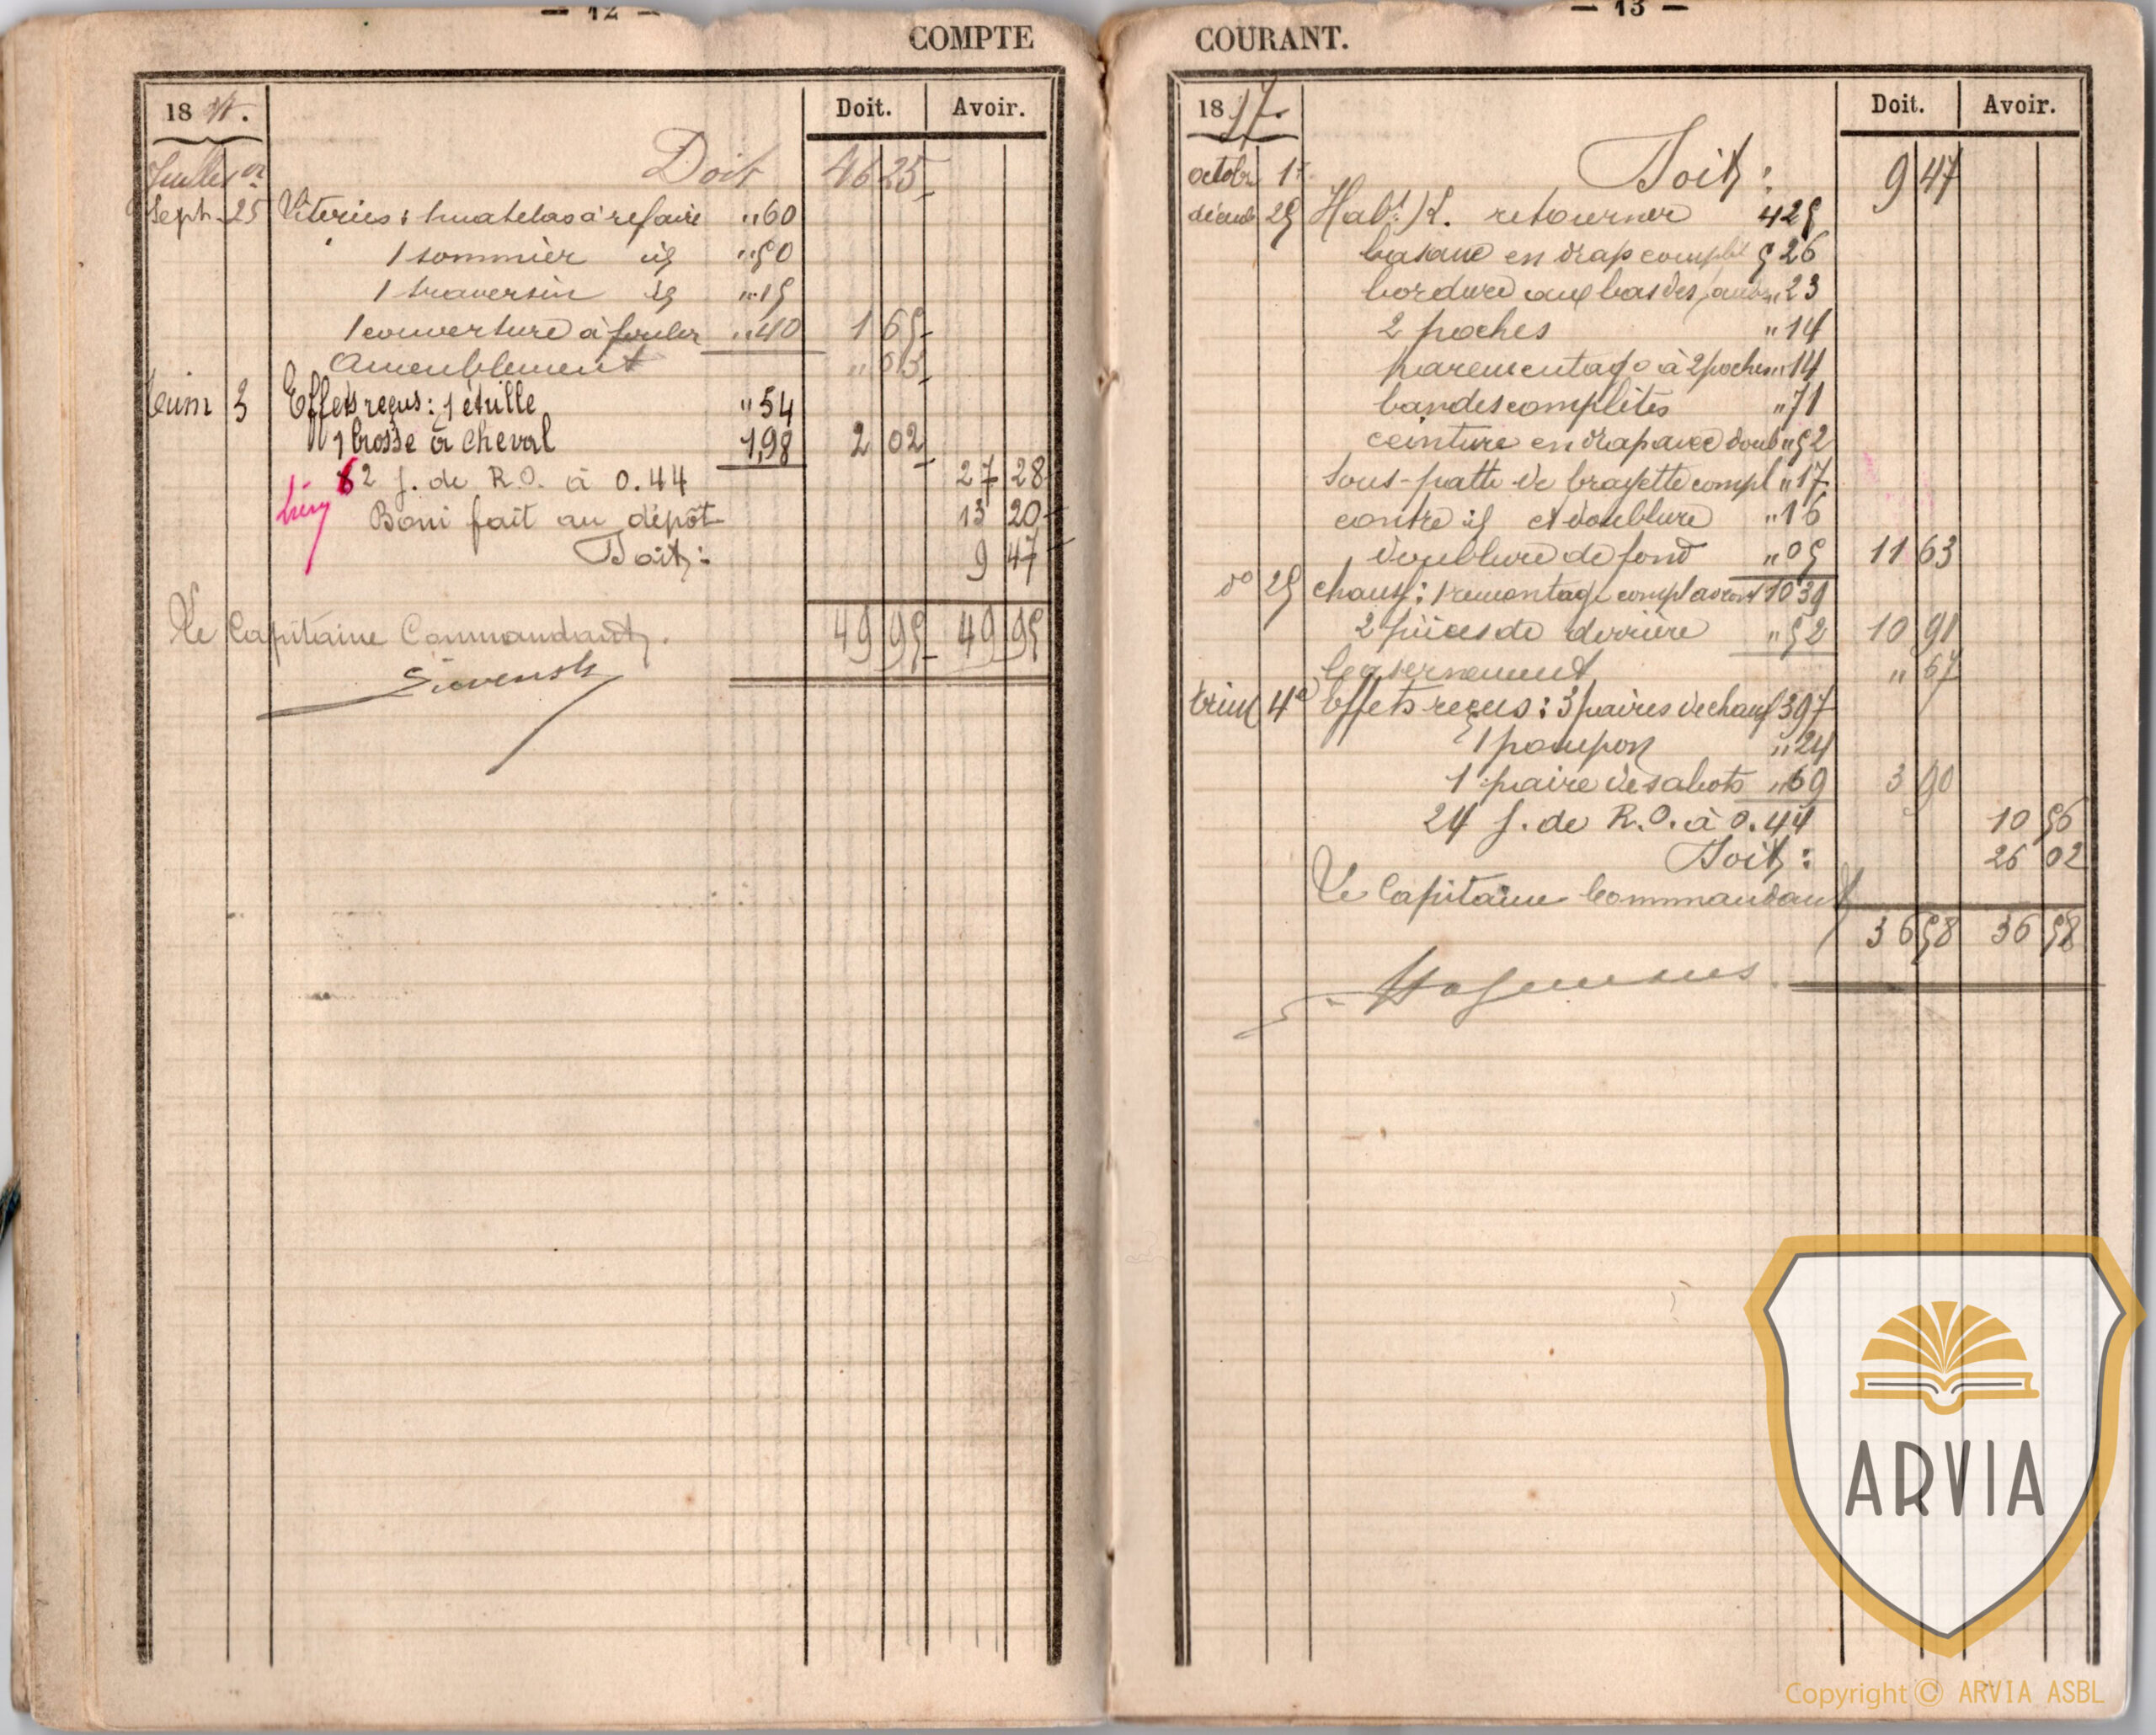 — 12 —
COMPTE
18
Doit. Avoir.
Juillet 1er Doit 46 25
Sept. 25 Literies : 1 matelas à refaire " 60
1 sommier id " 50
1 traversin id " 15
1 couverture à fouler " 40 1 65
Ameublement " 03
Trim 3 Effets reçus : 1 étrille " 54
1 brosse à cheval 1,98 2 02
62 j. de R.O. à 0.44 27 28
Boni fait au dépôt 13 20
Doit : 9 47
49 95 49 95
Le Capitaine Commandant.
— 13 —
COURANT.
1897.
Doit. Avoir.
octobr 1r Doit : 9 47
décemb 25 Habt retourner 4 25
basane en drap complet 5 26
bordure aux bas des " 23
2 poches " 14
parementage à 2 poches " 14
bandes complètes " 71
ceinture en drap avec doub " 52
sous-patte de brayette compl " 17
contre id et doublure " 16
doublure de fond " 05 11 63
do 25 chauss : 1 remontage compl 10 39
2 pièces de derrière " 52 10 91
Casernement " 67
trim 4e Effets reçus : 3 paires de chauss 3 97
1 pompon " 24
1 paire de sabots " 69 3 90
24 j. de R.O. à 0.44 10 56
Doit : 26 02
Le Capitaine Commandant
36 58 36 58
ARVIA
Copyright © ARVIA ASBL